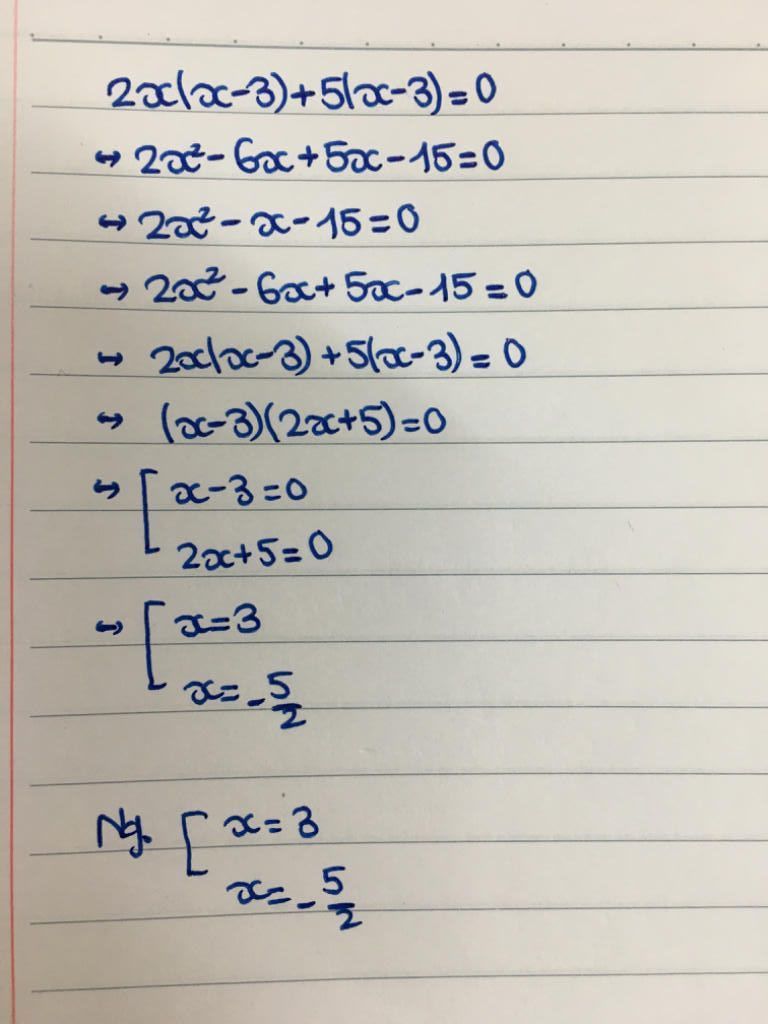 2x(x-3)+5(x-3)=0
↔ 2x²-6x+5x-15=0
↔ 2x²-x-15=0
↔ 2x²-6x+5x-15=0
↔ 2x(x-3)+5(x-3)=0
↔ (x-3)(2x+5)=0
↔ [ x-3=0
2x+5=0
↔ [ x=3
x=-5/2
Ng. [ x=3
x=-5/2